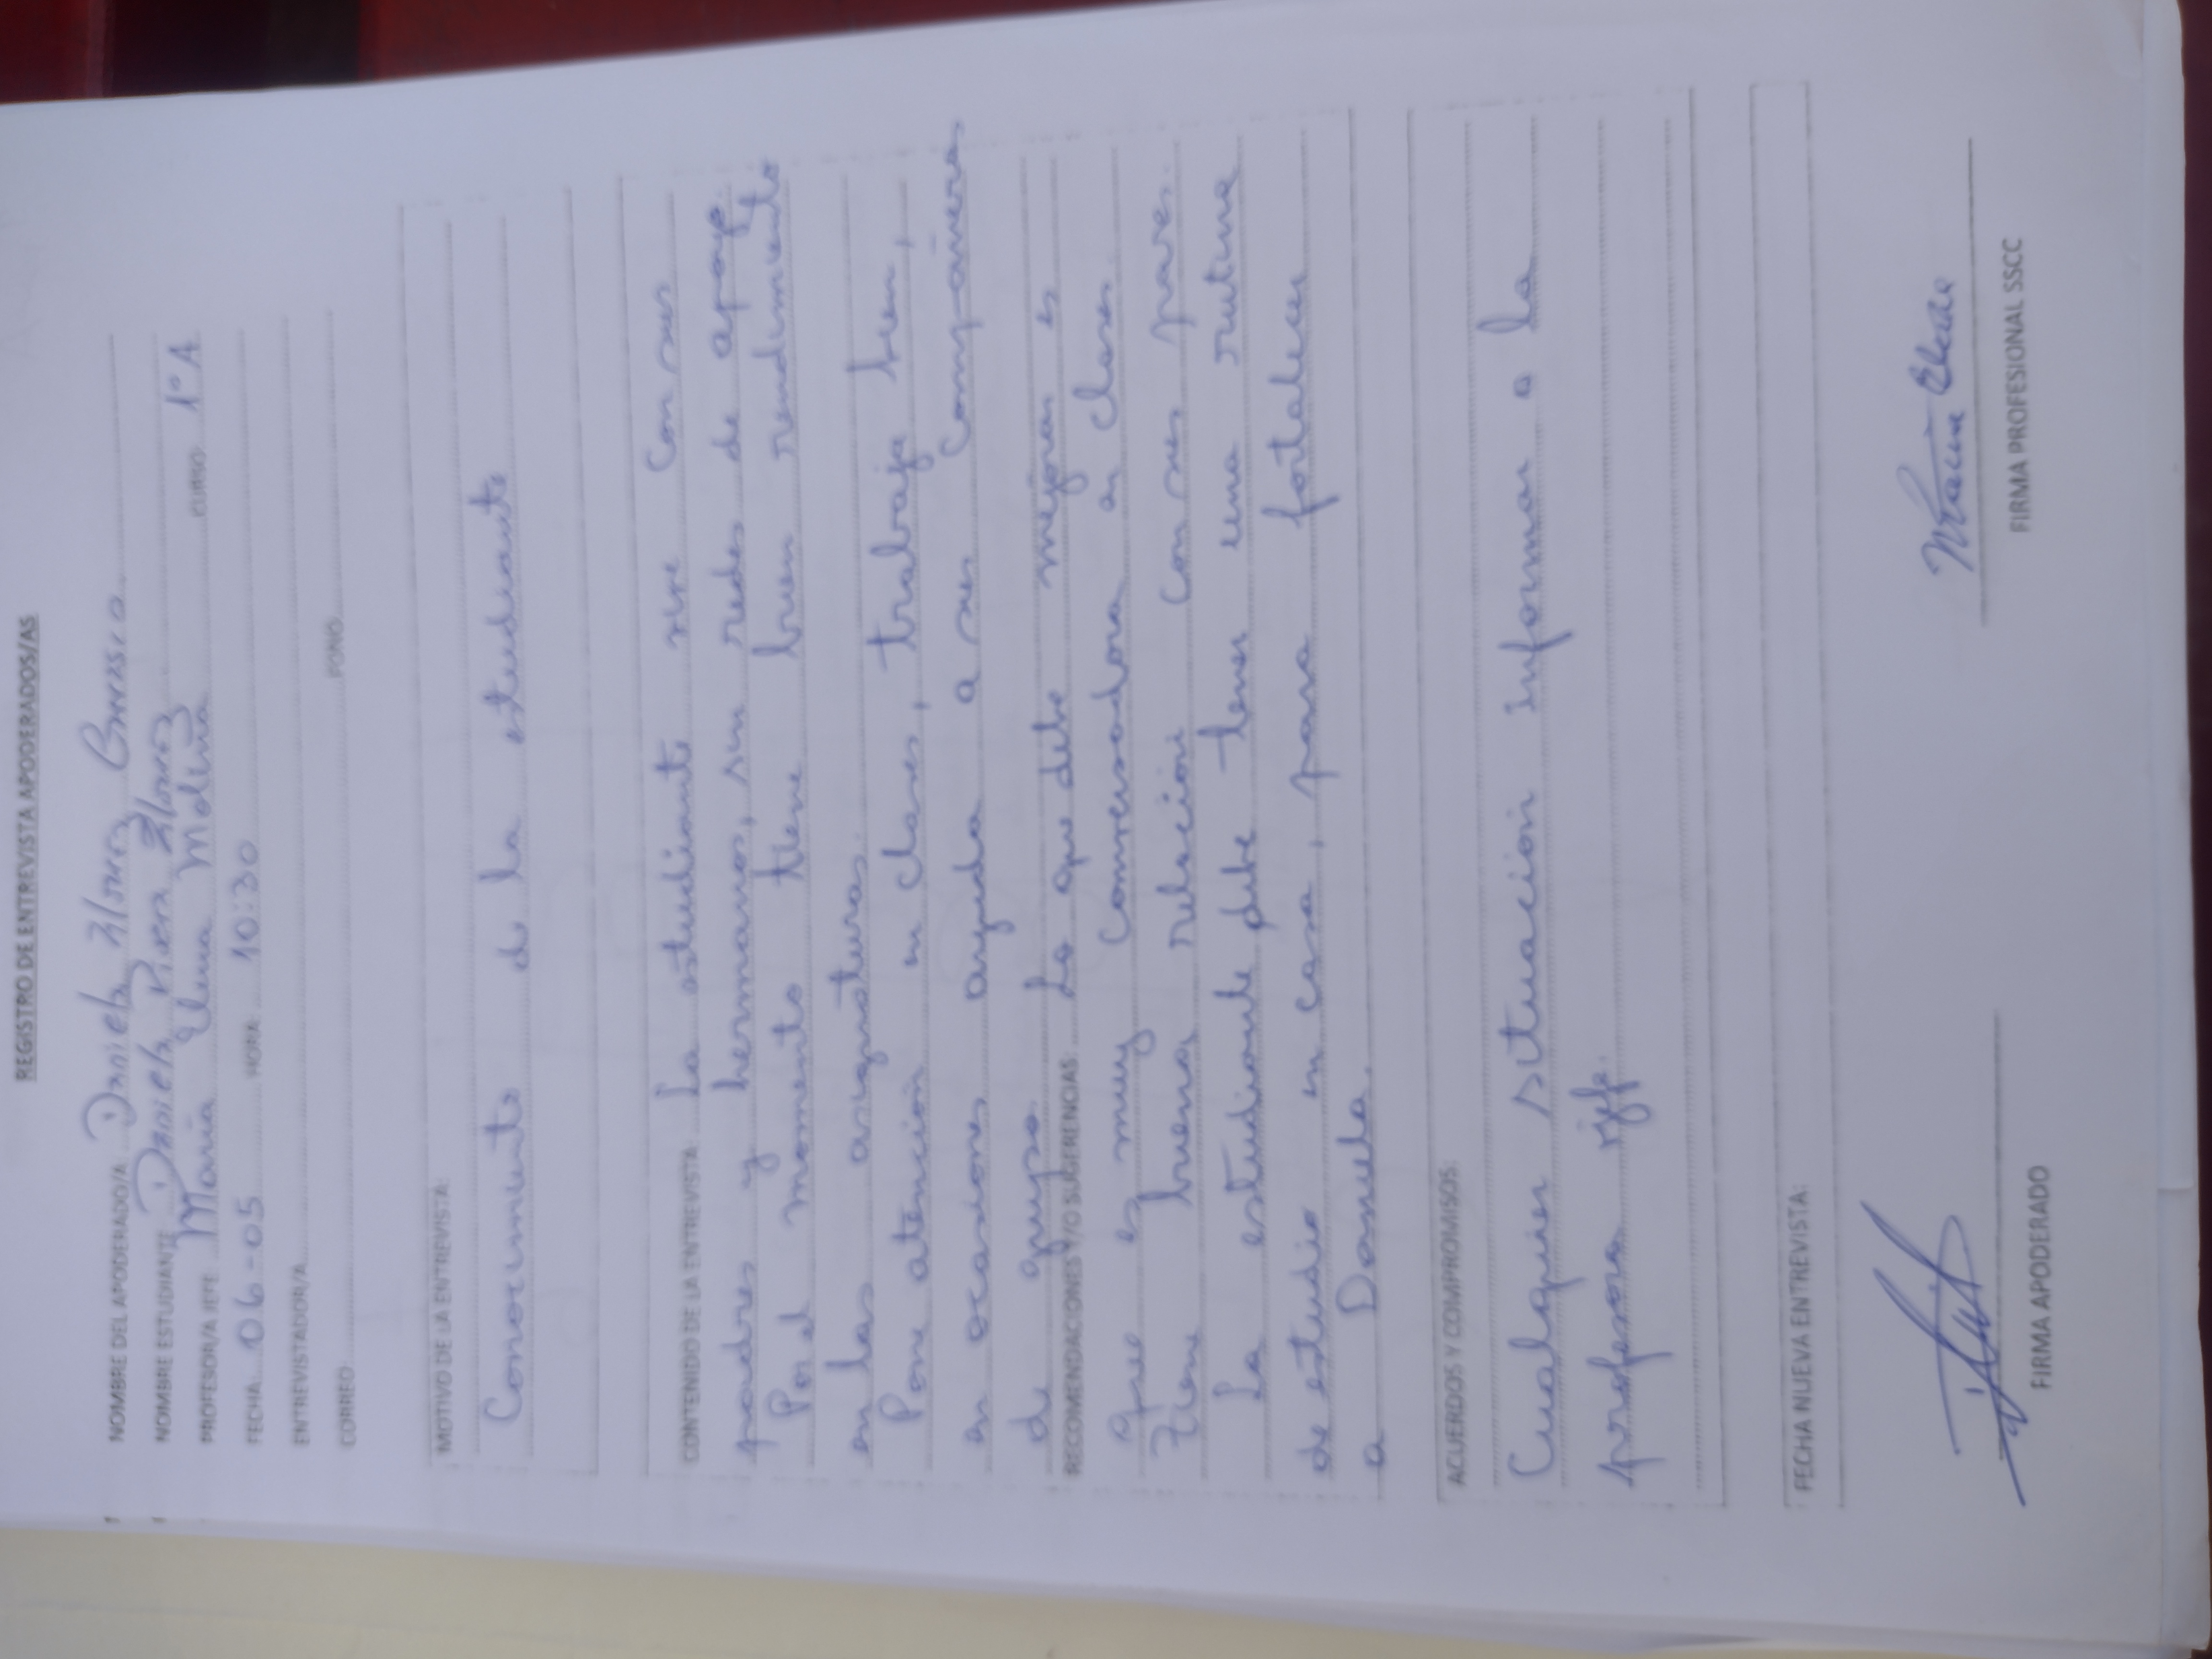 REGISTRO DE ENTREVISTA APODERADOS/AS
NOMBRE DEL APODERADO/A: Daniela
NOMBRE ESTUDIANTE Daniela
PROFESOR/A JEFE María Elena Medina CURSO 1°A
FECHA 06-05 HORA 10:30
ENTREVISTADOR/A
CORREO FONO
MOTIVO DE LA ENTREVISTA:
Conocimiento de la estudiante
CONTENIDO DE LA ENTREVISTA: La estudiante vive con sus
padres y hermanos, sin redes de apoyo.
Por el momento tiene buen rendimiento
en las asignaturas.
Pone atención en clases, trabaja bien,
en ocasiones ayuda a sus compañeros
de grupo. Lo que debe mejorar es
RECOMENDACIONES Y/O SUGERENCIAS:
que es muy conversadora en clases.
Tiene buena relación con sus pares.
La estudiante debe tener una rutina
de estudio en casa, para fortalecer
a Daniela.
ACUERDOS Y COMPROMISOS:
Cualquier situación informar a la
profesora jefe.
FECHA NUEVA ENTREVISTA:
FIRMA APODERADO FIRMA PROFESIONAL SSCC